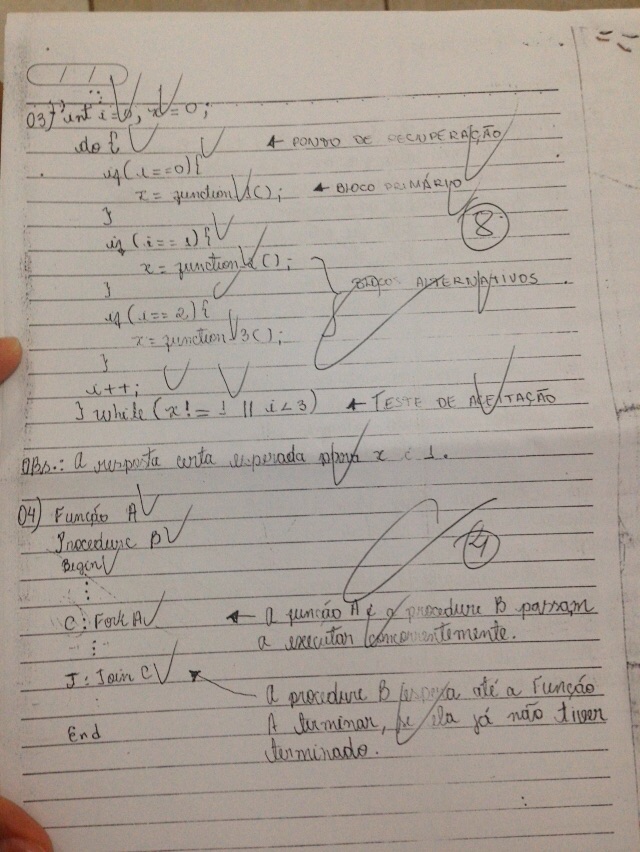 03) int i=0, x=0;
do{ ← PONTO DE RECUPERAÇÃO
if(i==0){
x = function1(); ← BLOCO PRIMÁRIO
}
8
if (i==1){
x = function2();
} BLOCOS ALTERNATIVOS.
if(i==2){
x = function3();
}
i++;
} while(x!=1 || i<3) ← TESTE DE ACEITAÇÃO
OBS.: A resposta certa esperada para x é 1.
04) Função A
Procedure B
4
Begin
⋮
C: Fork A ← A função A e o procedure B passam
a executar concorrentemente.
⋮
J: Join C
A procedure B espera até a Função
End A terminar, se ela já não tiver
terminado.